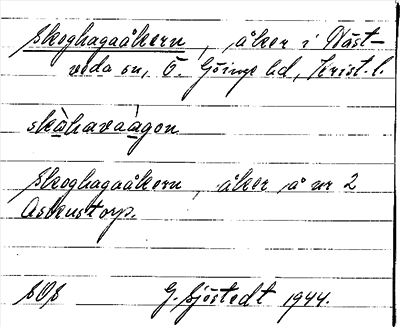 Skoghagaåkern, åker i Väst-
veda sn, Ö. Göinge hd, Krist. l.
skàhavaàgon
Skoghagaåkern, åker å nr 2
Askustorp.
SOS G. Sjöstedt 1944.